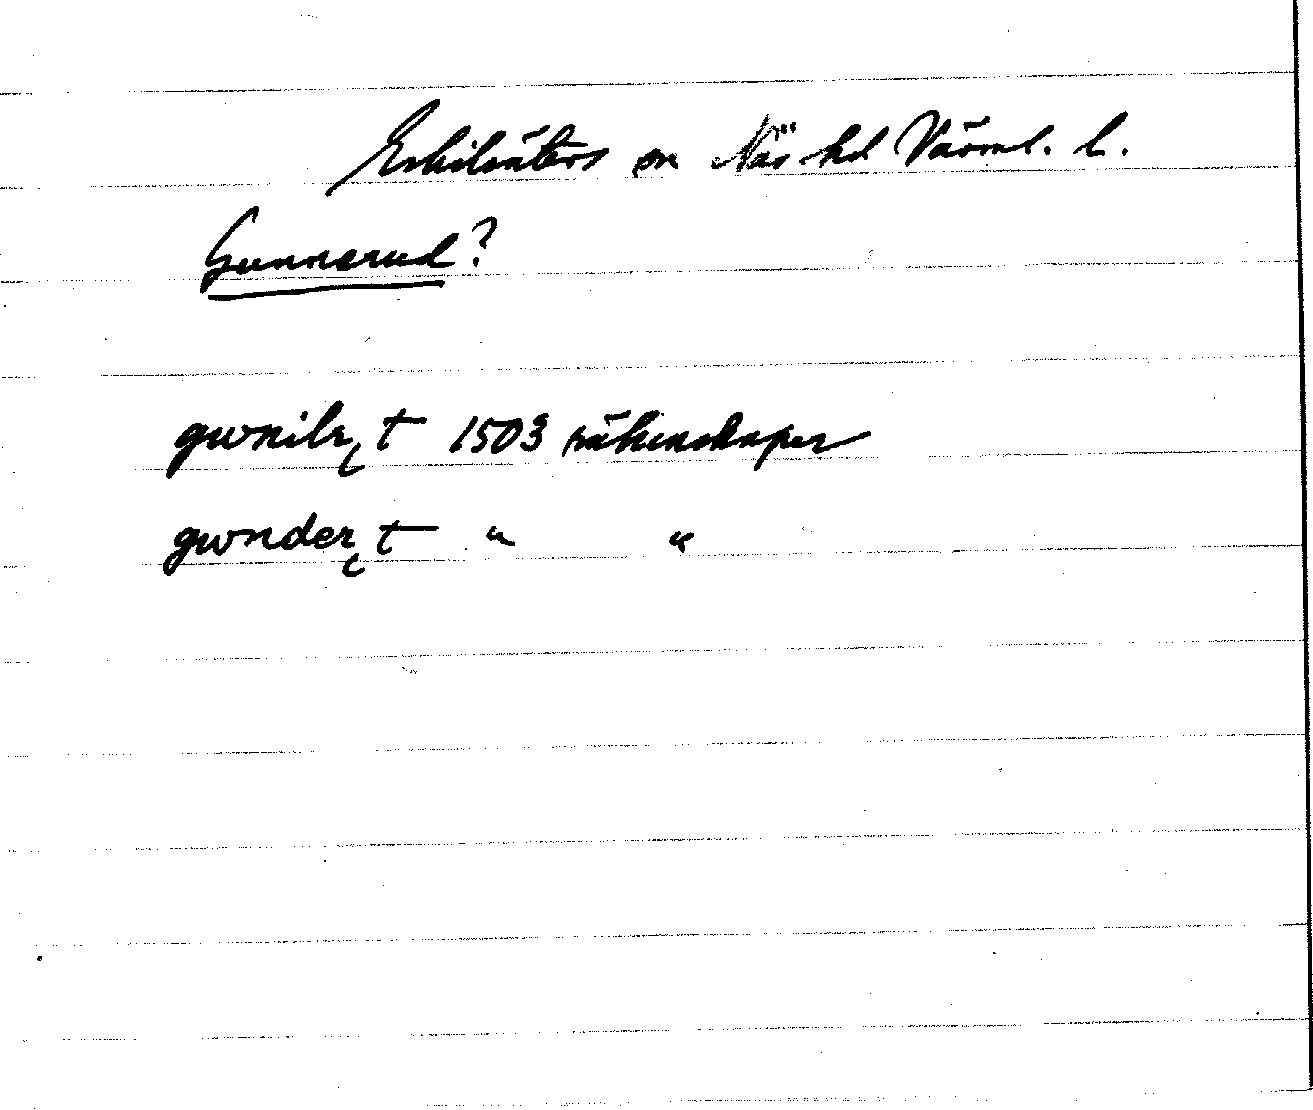 Eskilsäters sn Näs hd Värml. l.
Gunnerud?
gwnilr t 1503 räkenskaper
gwnder t " "